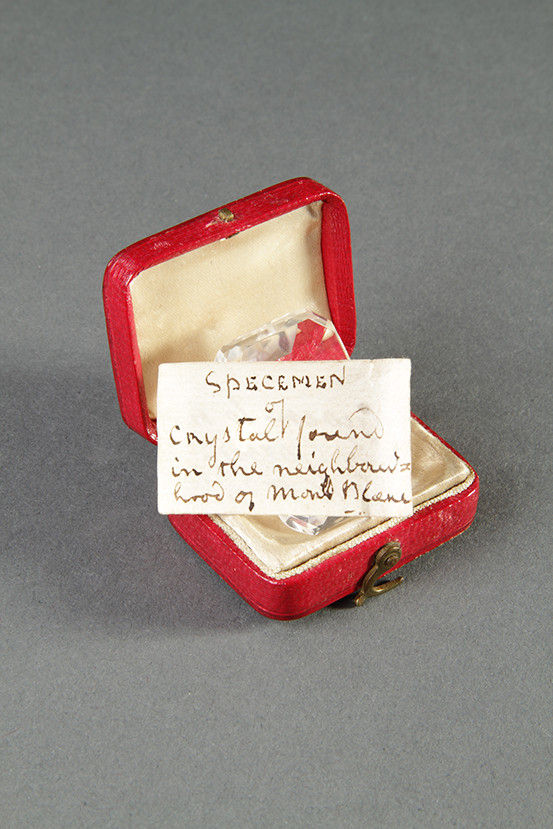 SPECEMEN
of
Crystal found
in the neighbour=
hood of Mont Blanc